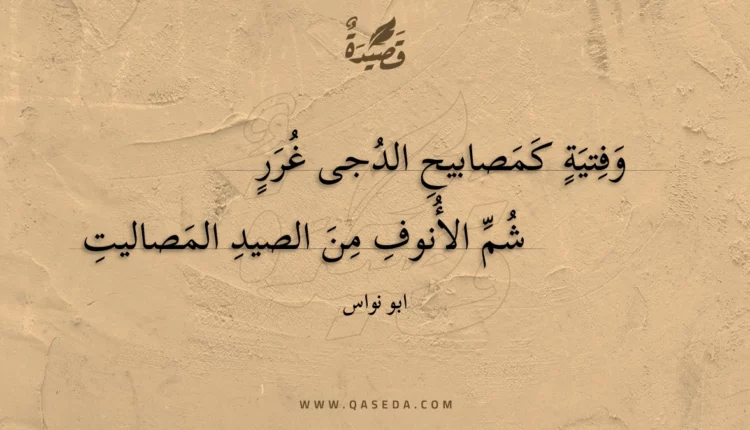 قَصِيدَةٌ
وَفِتيَةٍ كَمَصابيحِ الدُجى غُرَرٍ
شُمِّ الأُنوفِ مِنَ الصيدِ المَصاليتِ
ابو نواس
WWW.QASEDA.COM